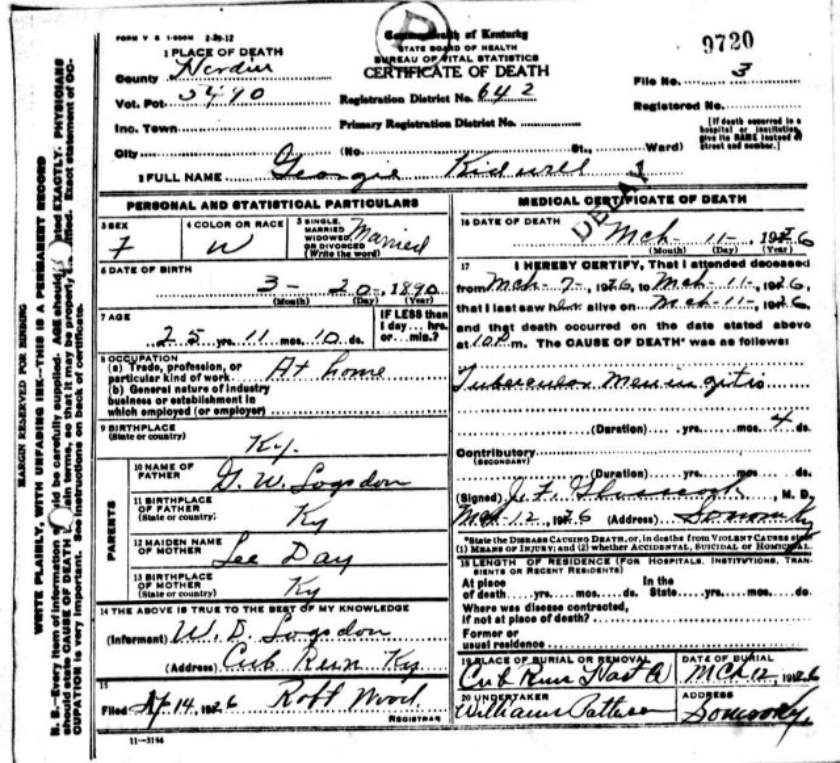 FORM V S 1-500M 2-29-12
Commonwealth of Kentucky
STATE BOARD OF HEALTH
BUREAU OF VITAL STATISTICS
CERTIFICATE OF DEATH
9720
1 PLACE OF DEATH
County Hardin
Vot. Pct. 5490
Inc. Town
City (No. St., Ward)
Registration District No. 642
Primary Registration District No.
File No. 3
Registered No.
[If death occurred in a hospital or institution, give its NAME instead of street and number.]
2 FULL NAME Georgie Kidwell
DELAY
PERSONAL AND STATISTICAL PARTICULARS
3 SEX F
4 COLOR OR RACE W
5 SINGLE, MARRIED WIDOWED OR DIVORCED (Write the word) Married
6 DATE OF BIRTH 3- 20-, 1890
(Month) (Day) (Year)
7 AGE 25 yrs. 11 mos. 10 ds.
IF LESS than 1 day... hrs. or... min.?
8 OCCUPATION
(a) Trade, profession, or particular kind of work At home
(b) General nature of industry business or establishment in which employed (or employer)
9 BIRTHPLACE (State or country) Ky.
PARENTS
10 NAME OF FATHER G. W. Logsdon
11 BIRTHPLACE OF FATHER (State or country) Ky
12 MAIDEN NAME OF MOTHER Lee Day
13 BIRTHPLACE OF MOTHER (State or country) Ky
14 THE ABOVE IS TRUE TO THE BEST OF MY KNOWLEDGE
(Informant) W. D. Logsdon
(Address) Cub Run Ky
15
Filed Ap 14, 1926 Robt Wood
REGISTRAR
11-3184
MEDICAL CERTIFICATE OF DEATH
16 DATE OF DEATH Mch- 11-, 1926
(Month) (Day) (Year)
17 I HEREBY CERTIFY, That I attended deceased
from Mch- 7-, 1926, to Mch- 11-, 1926,
that I last saw her alive on Mch-11-, 1926,
and that death occurred on the date stated above
at 10 P m. The CAUSE OF DEATH* was as follows:
Tubercular Meningitis
(Duration) yrs. mos. 4 ds.
Contributory
(SECONDARY)
(Duration) yrs. mos. ds.
(Signed) J. F., M. D.
Mch-12, 1926 (Address) Sonora Ky
*State the DISEASE CAUSING DEATH, or, in deaths from VIOLENT CAUSES state
(1) MEANS OF INJURY; and (2) whether ACCIDENTAL, SUICIDAL or HOMICIDAL.
18 LENGTH OF RESIDENCE (FOR HOSPITALS, INSTITUTIONS, TRANSIENTS OR RECENT RESIDENTS)
At place of death yrs. mos. ds. In the State yrs. mos. ds.
Where was disease contracted, if not at place of death?
Former or usual residence
19 PLACE OF BURIAL OR REMOVAL
Cub Run Hart Co
DATE OF BURIAL
Mch 12, 1926
20 UNDERTAKER
Williams Patterson
ADDRESS
Sonora Ky.
MARGIN RESERVED FOR BINDING
WRITE PLAINLY, WITH UNFADING INK—THIS IS A PERMANENT RECORD
N. B.—Every item of information should be carefully supplied. AGE should be stated EXACTLY. PHYSICIANS
should state CAUSE OF DEATH in plain terms, so that it may be properly classified. Exact statement of OC-
CUPATION is very important. See instructions on back of certificate.